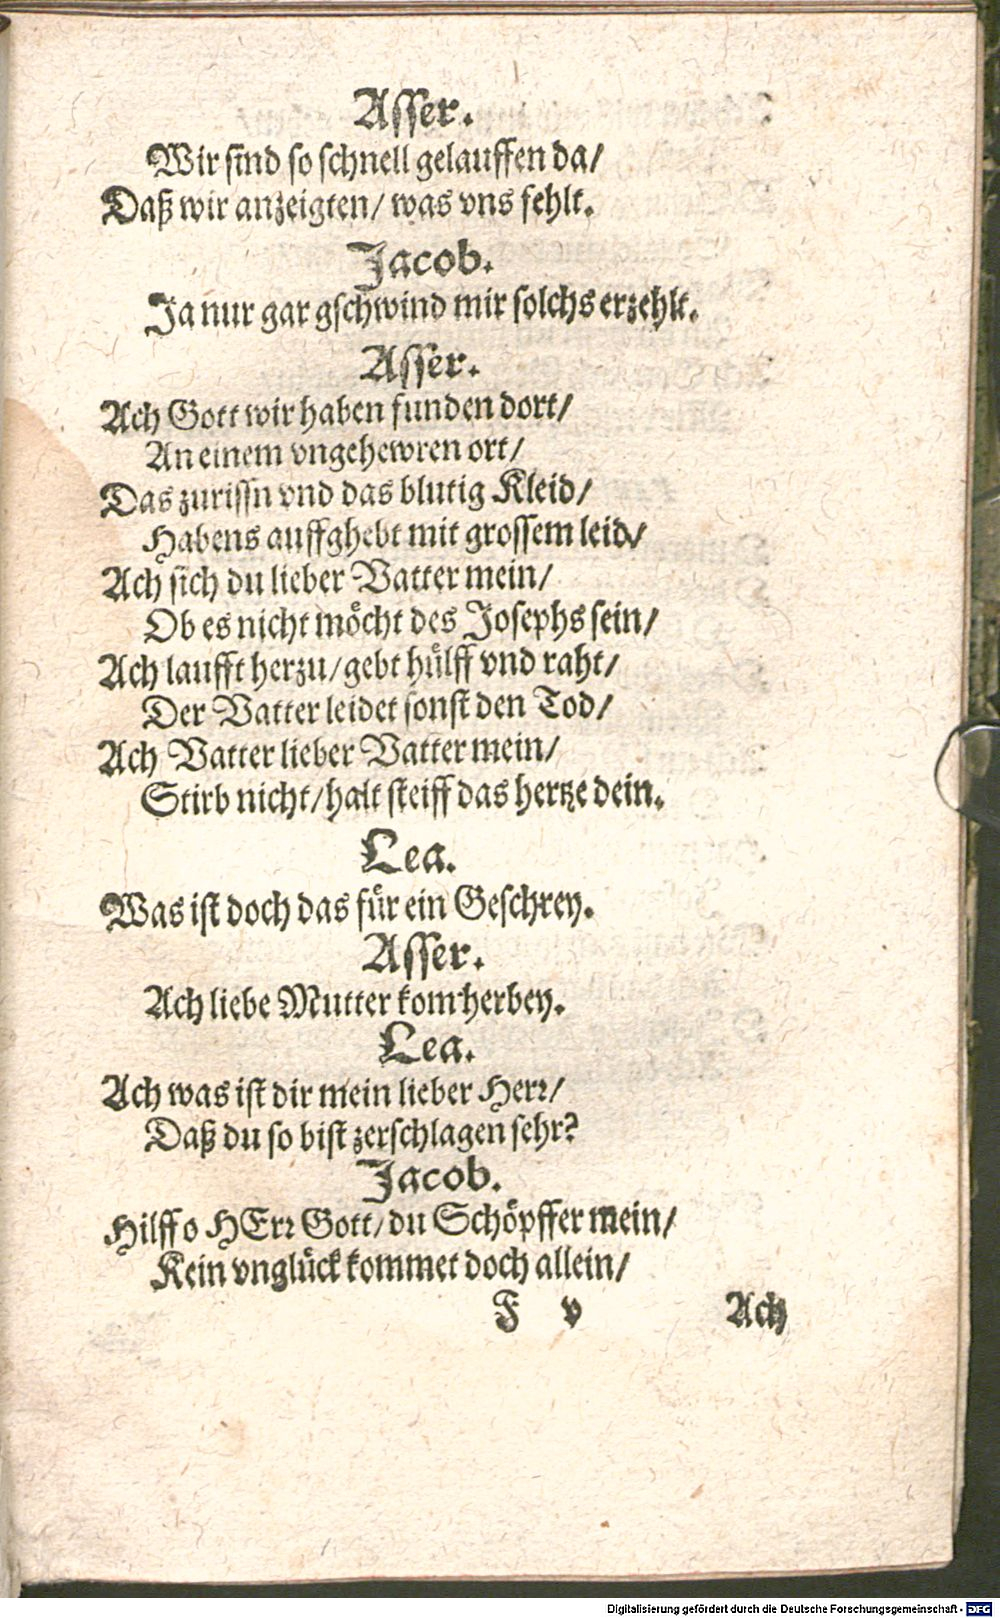 Asser.
Wir sind so schnell gelauffen da/
Daß wir anzeigten/ was vns fehlt.
Jacob.
Ja nur gar gschwind mir solchs erzehlt.
Asser.
Ach Gott wir haben funden dort/
An einem vngehewren ort/
Das zurissn vnd das blutig Kleid/
Habens auffghebt mit grossem leid/
Ach sich du lieber Vatter mein/
Ob es nicht möcht des Josephs sein/
Ach laufft herzu/ gebt hülff vnd raht/
Der Vatter leidet sonst den Tod/
Ach Vatter lieber Vatter mein/
Stirb nicht/ halt steiff das hertze dein.
Lea.
Was ist doch das für ein Geschrey.
Asser.
Ach liebe Mutter kom herbey.
Lea.
Ach was ist dir mein lieber Herr/
Daß du so bist zerschlagen sehr?
Jacob.
Hilff o HErr Gott/ du Schöpffer mein/
Kein vnglück kommet doch allein/
F v Ach
Digitalisierung gefördert durch die Deutsche Forschungsgemeinschaft - DFG